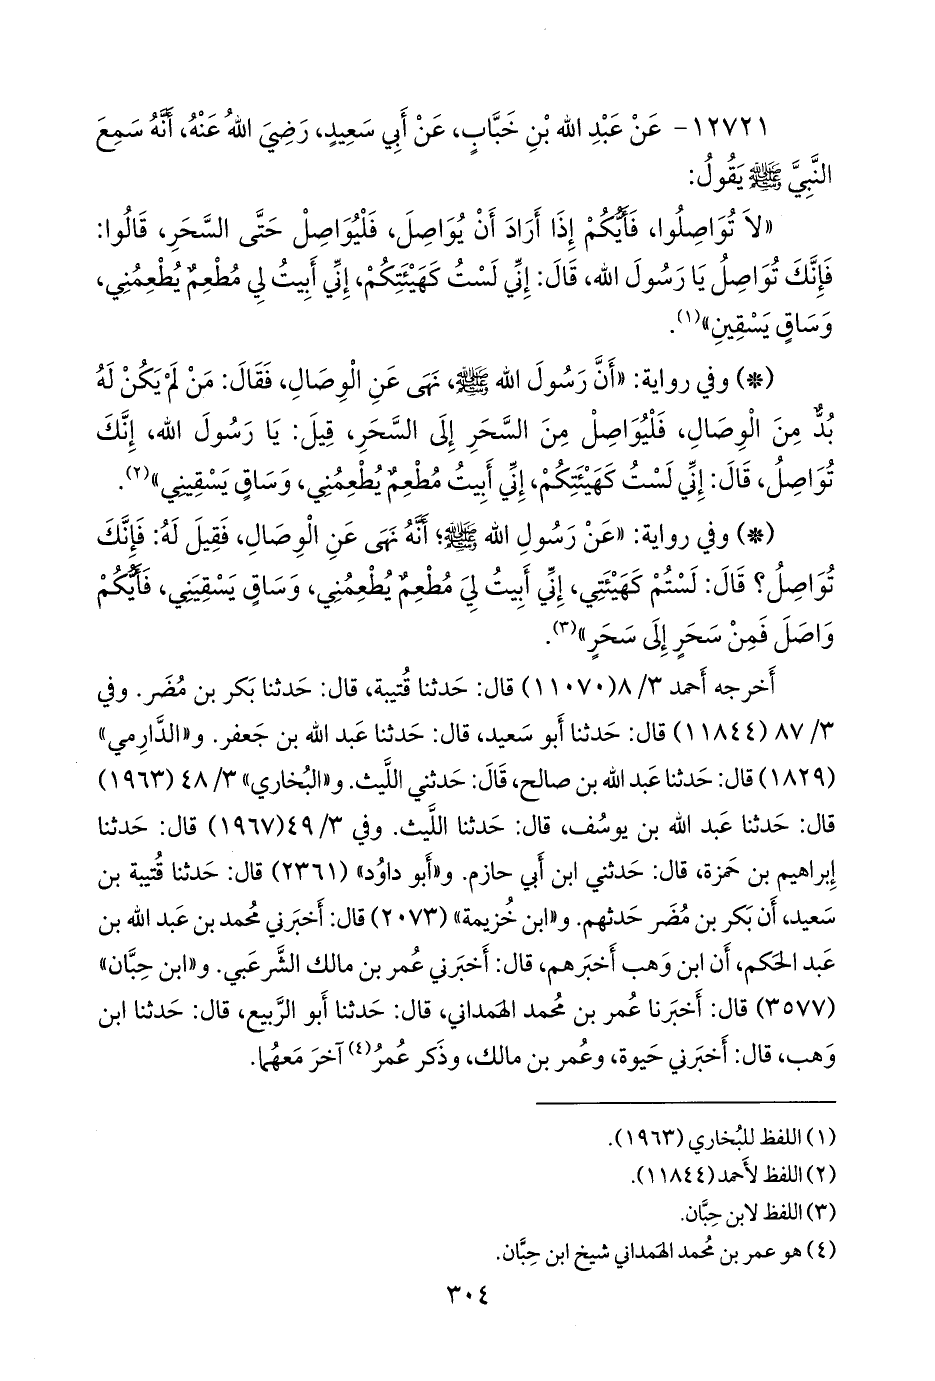 ١٢٧٢١- عَنْ عَبْدِ الله بْنِ خَبَّابٍ، عَنْ أَبِي سَعِيدٍ، رَضِيَ اللهُ عَنْهُ، أَنَّهُ سَمِعَ
النَّبِيَّ ﷺ يَقُولُ:
«لاَ تُوَاصِلُوا، فَأَيُّكُمْ إِذَا أَرَادَ أَنْ يُوَاصِلَ، فَلْيُوَاصِلْ حَتَّى السَّحَرِ، قَالُوا:
فَإِنَّكَ تُوَاصِلُ يَا رَسُولَ الله، قَالَ: إِنِّي لَسْتُ كَهَيْئَتِكُمْ، إِنِّي أَبِيتُ لِي مُطْعِمٌ يُطْعِمُنِي،
وَسَاقٍ يَسْقِينِ»(١).
(*) وفي رواية: «أَنَّ رَسُولَ الله ﷺ، نَهَى عَنِ الْوِصَالِ، فَقَالَ: مَنْ لَمْ يَكُنْ لَهُ
بُدٌّ مِنَ الْوِصَالِ، فَلْيُوَاصِلْ مِنَ السَّحَرِ إِلَى السَّحَرِ، قِيلَ: يَا رَسُولَ الله، إِنَّكَ
تُوَاصِلُ، قَالَ: إِنِّي لَسْتُ كَهَيْئَتِكُمْ، إِنِّي أَبِيتُ مُطْعِمٌ يُطْعِمُنِي، وَسَاقٍ يَسْقِينِي»(٢).
(*) وفي رواية: «عَنْ رَسُولِ الله ﷺ؛ أَنَّهُ نَهَى عَنِ الْوِصَالِ، فَقِيلَ لَهُ: فَإِنَّكَ
تُوَاصِلُ؟ قَالَ: لَسْتُمْ كَهَيْئَتِي، إِنِّي أَبِيتُ لِيَ مُطْعِمٌ يُطْعِمُنِي، وَسَاقٍ يَسْقِيَنِي، فَأَيُّكُمْ
وَاصَلَ فَمِنْ سَحَرٍ إِلَى سَحَرٍ»(٣).
أَخرجه أَحمد ٣/ ٨(١١٠٧٠) قال: حَدثنا قُتيبة، قال: حَدثنا بَكر بن مُضَر. وفي
٣/ ٨٧ (١١٨٤٤) قال: حَدثنا أَبو سَعيد، قال: حَدثنا عَبد الله بن جَعفر. و«الدَّارِمي»
(١٨٢٩) قال: حَدثنا عَبد الله بن صالح، قَالَ: حَدثني اللَّيث. و«البُخاري» ٣/ ٤٨ (١٩٦٣)
قال: حَدثنا عَبد الله بن يوسُف، قال: حَدثنا اللَّيث. وفي ٣/ ٤٩(١٩٦٧) قال: حَدثنا
إِبراهيم بن حَمزة، قال: حَدثني ابن أَبي حازم. و«أَبو داوُد» (٢٣٦١) قال: حَدثنا قُتيبة بن
سَعيد، أَن بَكر بن مُضَر حَدثهم. و«ابن خُزيمة» (٢٠٧٣) قال: أَخبَرني مُحمد بن عَبد الله بن
عَبد الحَكم، أَن ابن وَهب أَخبَرهم، قال: أَخبَرني عُمر بن مالك الشَّرعَبي. و«ابن حِبَّان»
(٣٥٧٧) قال: أَخبَرنا عُمر بن مُحمد الهَمداني، قال: حَدثنا أَبو الرَّبيع، قال: حَدثنا ابن
وَهب، قال: أَخبَرني حَيوة، وعُمر بن مالك، وذَكر عُمرُ(٤) آخرَ مَعهُما.
(١) اللفظ للبُخاري (١٩٦٣).
(٢) اللفظ لأَحمد (١١٨٤٤).
(٣) اللفظ لابن حِبَّان.
(٤) هو عمر بن مُحمد الهَمداني شيخ ابن حِبَّان.
٣٠٤